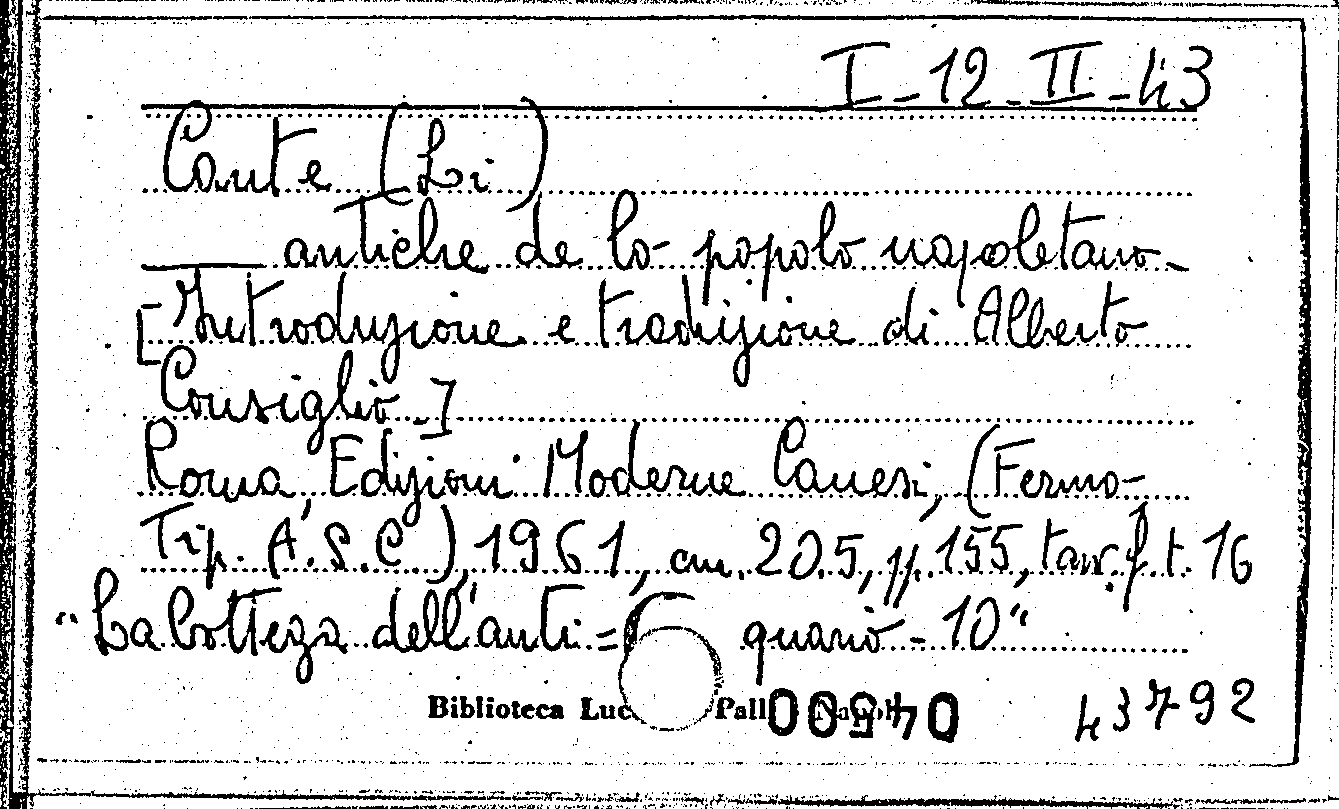 I-12-II-43
Conte (Li)
___ antiche de lo popolo napoletano-
[Introduzione e traduzione di Alberto
Consiglio.]
Roma, Edizioni Moderne Canesi, (Fermo,
Tip. A.S.C.), 1961, cm. 20.5, pp. 155, tav. f. t. 16
"La bottega dell'anti= quario - 10"
Biblioteca Luc Pall Napoli
04500
43792